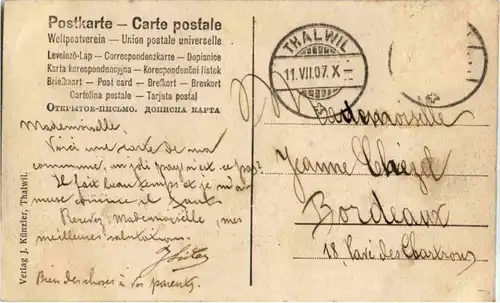 Postkarte — Carte postale
Weltpostverein — Union postale universelle
Levelező-Lap — Correspondenzkarte — Dopisnice
Karta korespondencyjna — Korespondenční lístek
Briefkaart — Post card — Brefkort — Brevkort
Cartolina postale — Tarjeta postal
Открытое-письмо. Дописна карта
THALWIL
11.VII.07.X
Mademoiselle
Jeanne
Bordeaux
18, des Chartrons
Mademoiselle,
Voici une carte de ma
commune, joli pays n'est-ce pas?
Il fait beau temps et je m'a-
muse comme il faut.
Recevez Mademoiselle, mes
meilleures salutations.
Bien des choses à vos parents.
Verlag J. Künzler, Thalwil.